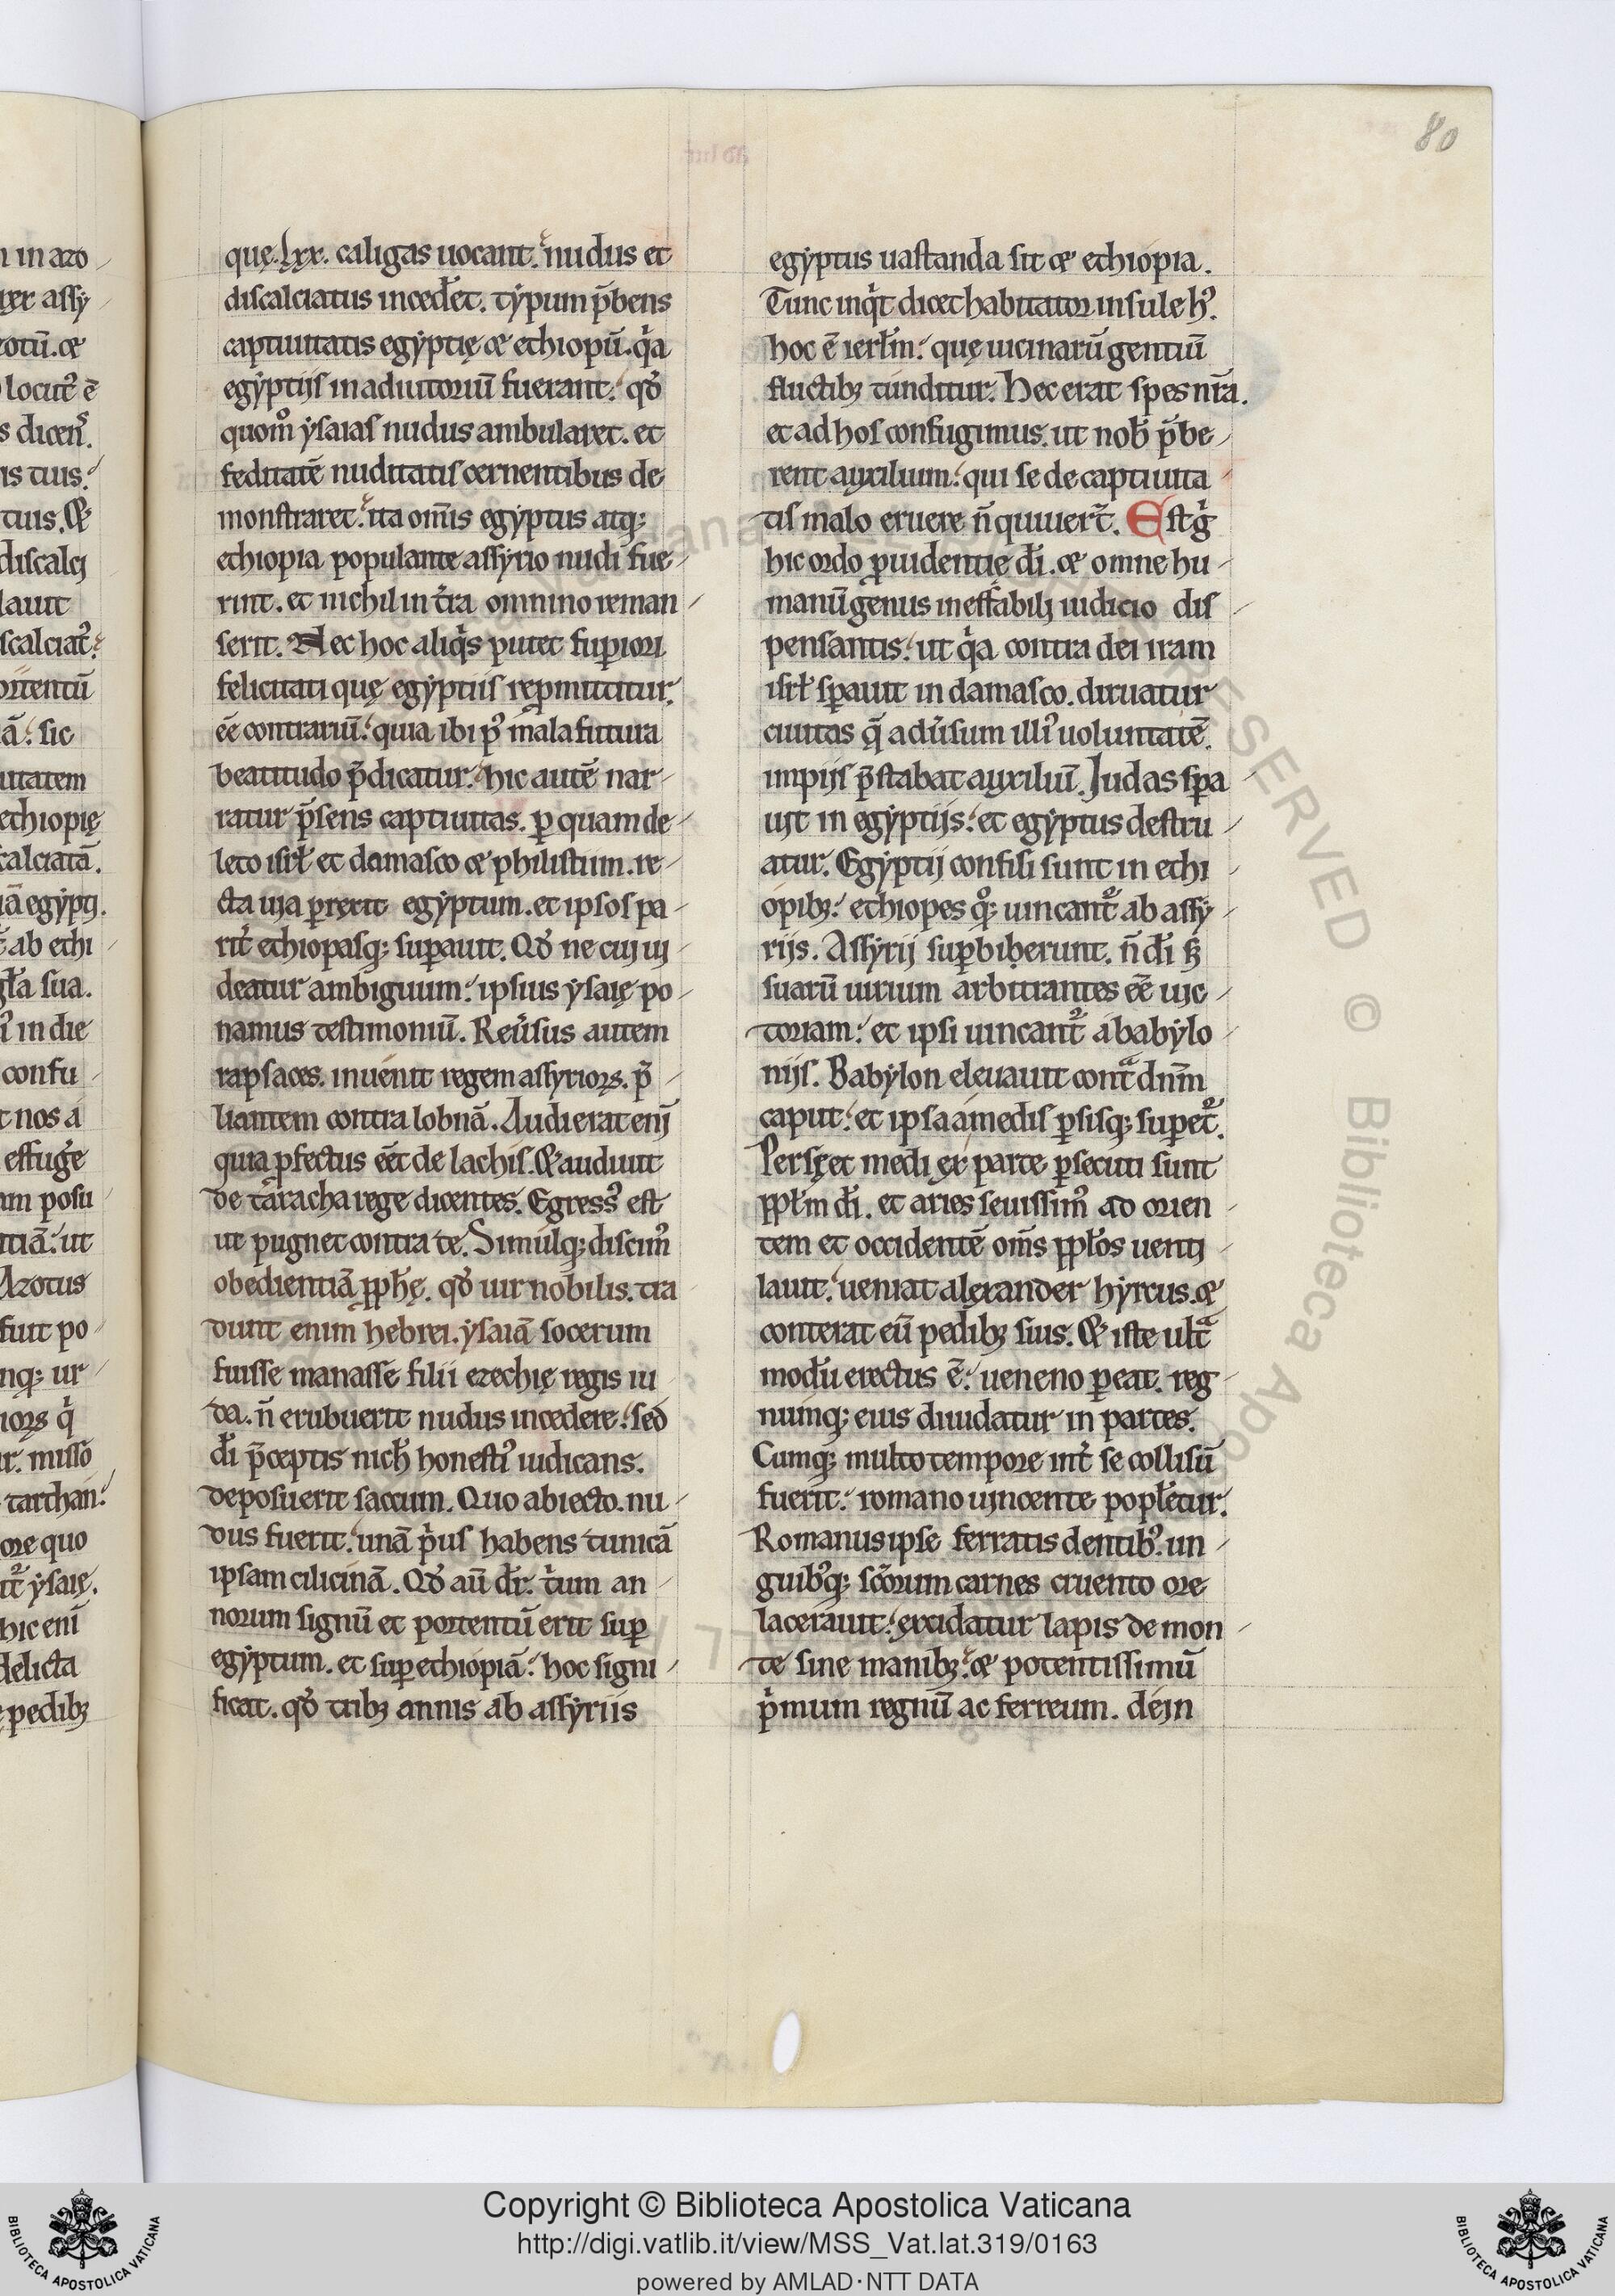 80
quę .lxx. caligas uocant. nudus et
discalciatus inced̃et. typum p̃bens
captiuitatis egyptię & ethiopũ. qͥa
egyptiis in adiutoriũ fuerant. qđ
quom̊ ysaias nudus ambularet. et
feditatẽ nuditatis cernentibus de
monstraret. ita om̃is egyptus atq;
ethiopia populante assyrio nudi fue
rint. et nichil in t̃ra omnino reman
serit. Nec hoc aliqͥs putet supiori
felicitati quę egyptiis repmittitur.
eẽ contrariũ. quia ibi pꝰ mala futura
beatitudo p̃dicatur. hic autẽ nar
ratur p̃sens captiuitas. ꝑ quam de
leto isrł et damasco & philistiim. re
cta uia ꝑrexit egyptum. et ipsos pa
rit̃ ethiopasq; suꝑauit. Qđ ne cui ui
deatur ambiguum. ipsius ysaię po
namus testimoniũ. Reũsus autem
rapsaces. inuenit regem assyrioꝝ. p̃
liantem contra lobnã. Audierat eni
quia ꝓfectus eẽt de lachis. & audiuit
de taracha rege dicentes. Egressꝰ est
ut pugnet contra te. Simulq; discimꝰ
obedientiã ꝓph̃ę. qđ uir nobilis. tra
dunt enim hebrei. ysaiã socerum
fuisse manasse filii ezechię regis iu
da. ñ erubuerit nudus incedere. sed
dĩ p̃ceptis nich̃ honestiꝰ iudicans.
deposuerit saccum. Quo abiecto. nu
dus fuerit. unã pͥus habens tunicã
ipsam cilicinã. Qđ aũ dr̃. t̃um an
norum signũ et portentũ erit suꝑ
egyptum. et suꝑ ethiopiã. hoc signi
ficat. qđ tribꝫ annis ab assyriis
egyptus uastanda sit & ethiopia.
Tunc inqͥt dicet habitator insule hꝰ.
hoc ẽ ierłm. quę uicinarũ gentiũ
fluctibꝫ tunditur. Hec erat spes nr̃a.
et ad hos confugimus. ut nob̃ p̃be
rent auxilium. qui se de captiuita
tis malo eruere ñ quiuer̃t. Est gͥ
hic ordo ꝓuidentię dĩ. & omne hu
manũ genus ineffabili iudicio dis
pensantis. ut qͥa contra dei iram
isrł sꝑauit in damasco. diruatur
ciuitas q̃ adũsum illiꝰ uoluntatẽ.
impiis p̃stabat auxiliũ. Judas sꝑa
uit in egyptiis. et egyptus destru
atur. Egyptii confisi sunt in ethi
opibꝫ. ethiopes qͦ; uincant᷑ ab assy
riis. Assyrii suꝑbierunt. ñ dĩ sꝫ
suarũ uirium arbitrantes eẽ uic
toriam. et ipsi uincant᷑ a babylo
niis. Babylon eleuauit contͣ dnm̃
caput. et ipsa a medis ꝑsisq; suꝑet᷑.
Persę et medi ex parte ꝑsecuti sunt
ppłm dĩ. et aries seuissimꝰ ad orien
tem et occidentẽ om̃s ppłos uenti
lauit. ueniat alexander hyrcus. &
conterat eũ pedibꝫ suis. & iste ultͣ
modũ erectus ẽ. ueneno ꝑeat. reg
numq; eius diuidatur in partes.
Cumq; multo tempore int̃ se collisũ
fuerit. romano uincente popłetur.
Romanus ipse ferratis dentibꝰ. un
guibꝰq; sc̃orum carnes cruento ore
lacerauit. excidatur lapis de mon
te sine manibꝫ. & potentissimũ
pͥmum regnũ ac ferreum. dein
Copyright © Biblioteca Apostolica Vaticana
http://digi.vatlib.it/view/MSS_Vat.lat.319/0163
powered by AMLAD·NTT DATA
BIBLIOTECA APOSTOLICA VATICANA
BIBLIOTECA APOSTOLICA VATICANA